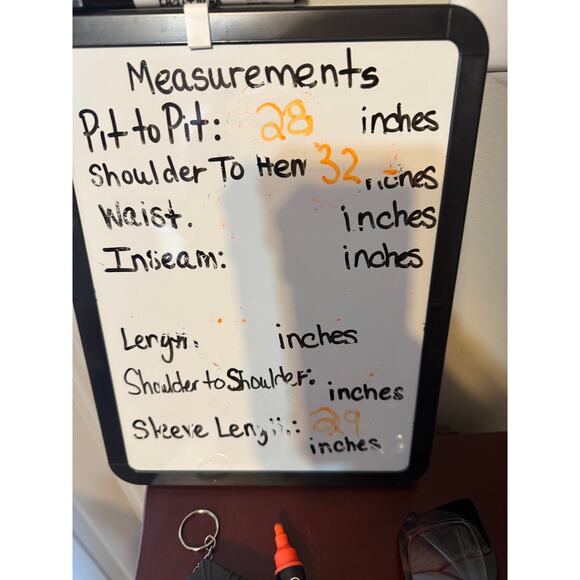 Measurements
Pit to Pit: 28 inches
Shoulder To Hem 32 inches
Waist. inches
Inseam: inches
Length: inches
Shoulder to Shoulder: inches
Sleeve Length: 29
inches